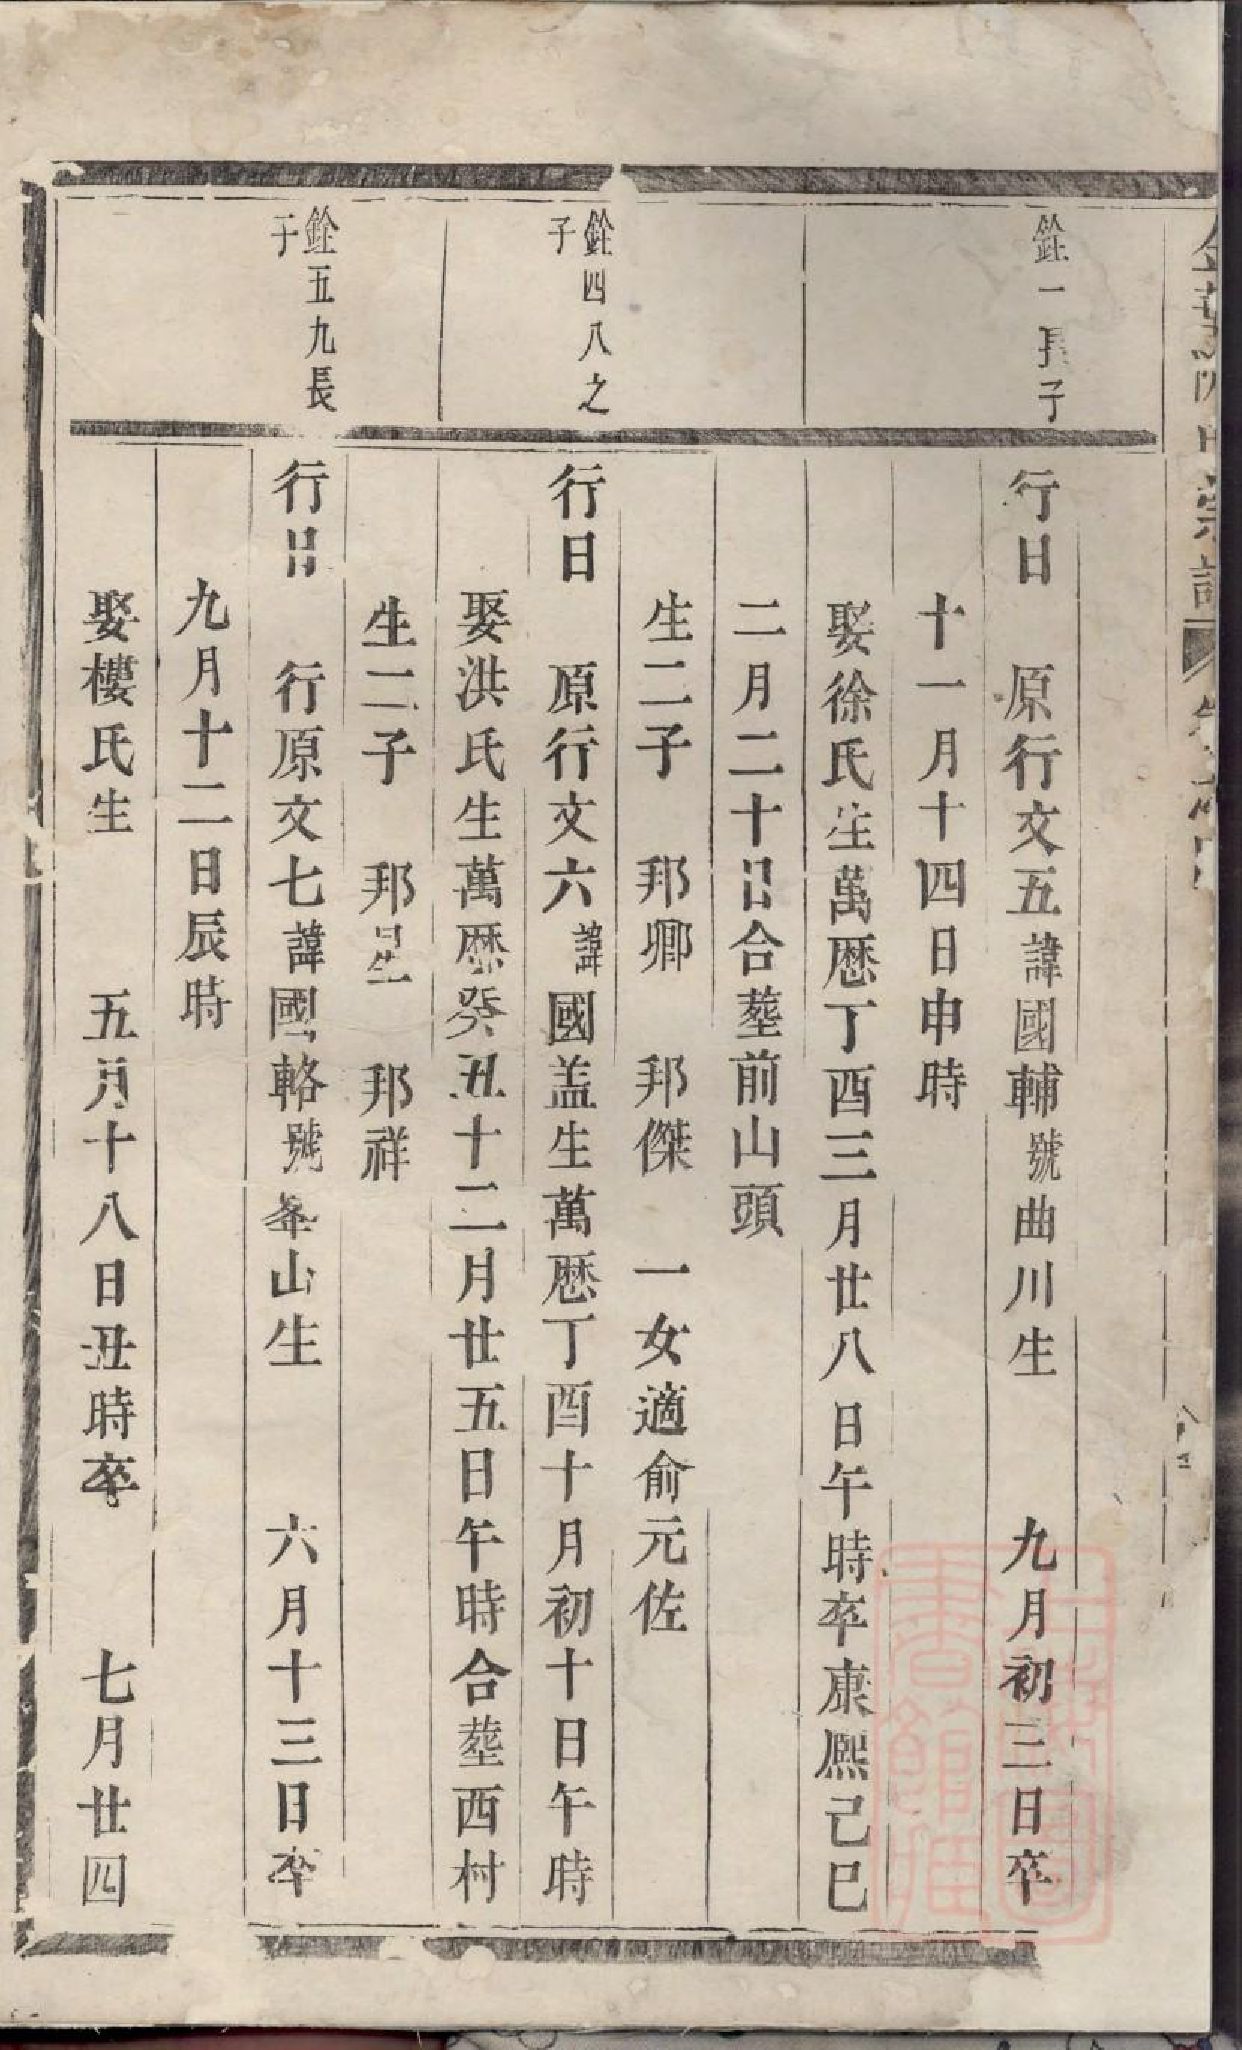 銓一長子
行日　原行文五諱國輔號曲川生　九月初三日卒
十一月十四日申時
娶徐氏生萬厯丁酉三月廿八日午時卒康熈己巳
二月二十日合塟前山頭
生二子　邦卿　邦傑　一女適俞元佐
銓四八之
子
行日　原行文六諱國盖生萬厯丁酉十月初十日午時
娶洪氏生萬厯癸丑十二月廿五日午時合塟西村
生二子　邦星　邦祥
銓五九長
子
行日　行原文七諱國輅號峯山生　六月十三日卒
九月十二日辰時
娶樓氏生　五月十八日丑時卒　七月廿四